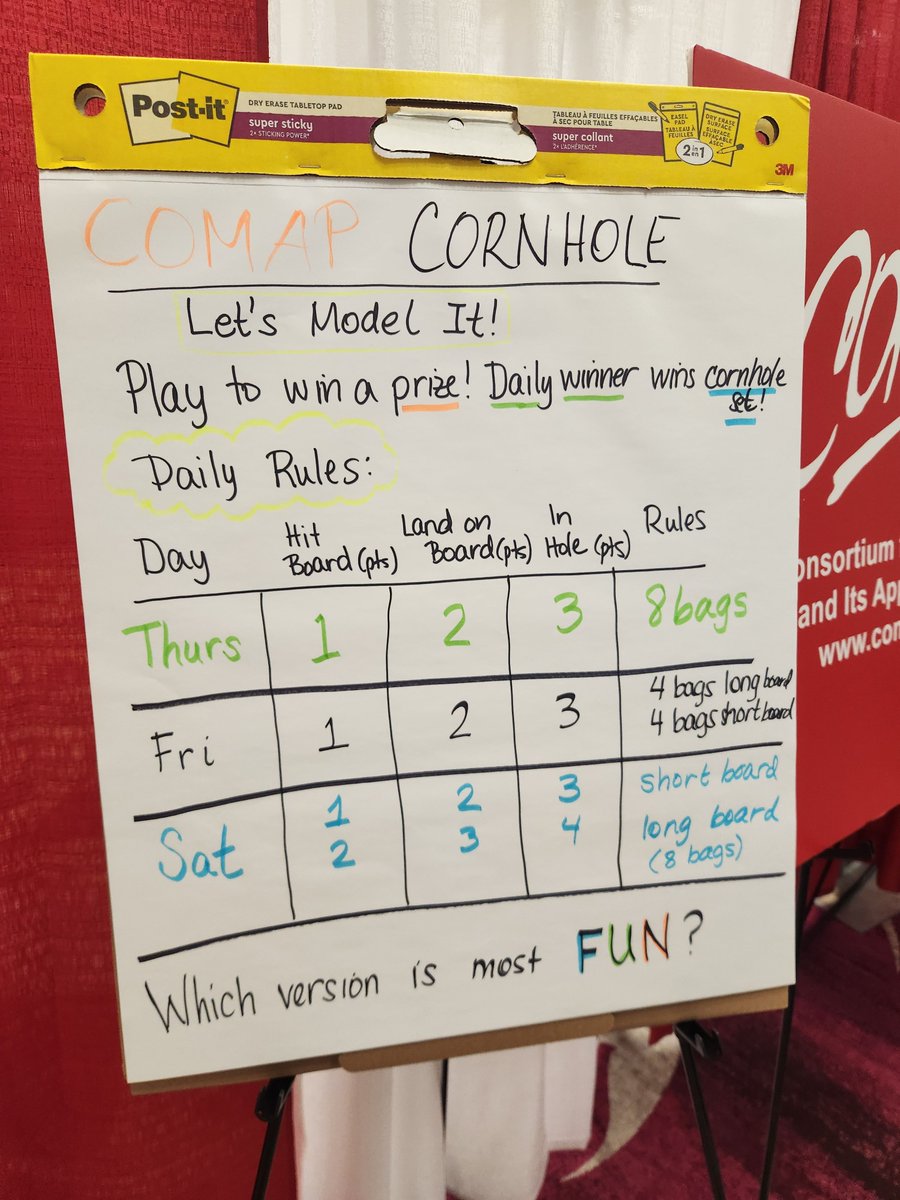 Post-it®
DRY ERASE TABLETOP PAD
super sticky
2× STICKING POWER*
TABLEAU À FEUILLES EFFAÇABLES
À SEC POUR TABLE
super collant
2× L'ADHÉRENCE*
EASEL
PAD
TABLEAU À
FEUILLES
DRY ERASE
SURFACE
SURFACE
EFFAÇABLE
À SEC
2 en in 1
3M
COMAP CORNHOLE
Let's Model It!
Play to win a prize! Daily winner wins cornhole
set!
Daily Rules:
Day Hit Board (pts) Land on Board (pts) In Hole (pts) Rules
Thurs 1 2 3 8 bags
Fri 1 2 3 4 bags long board
4 bags short board
Sat 1 2 3 short board
2 3 4 long board
(8 bags)
Which version is most FUN?
onsortium
and Its App
www.com